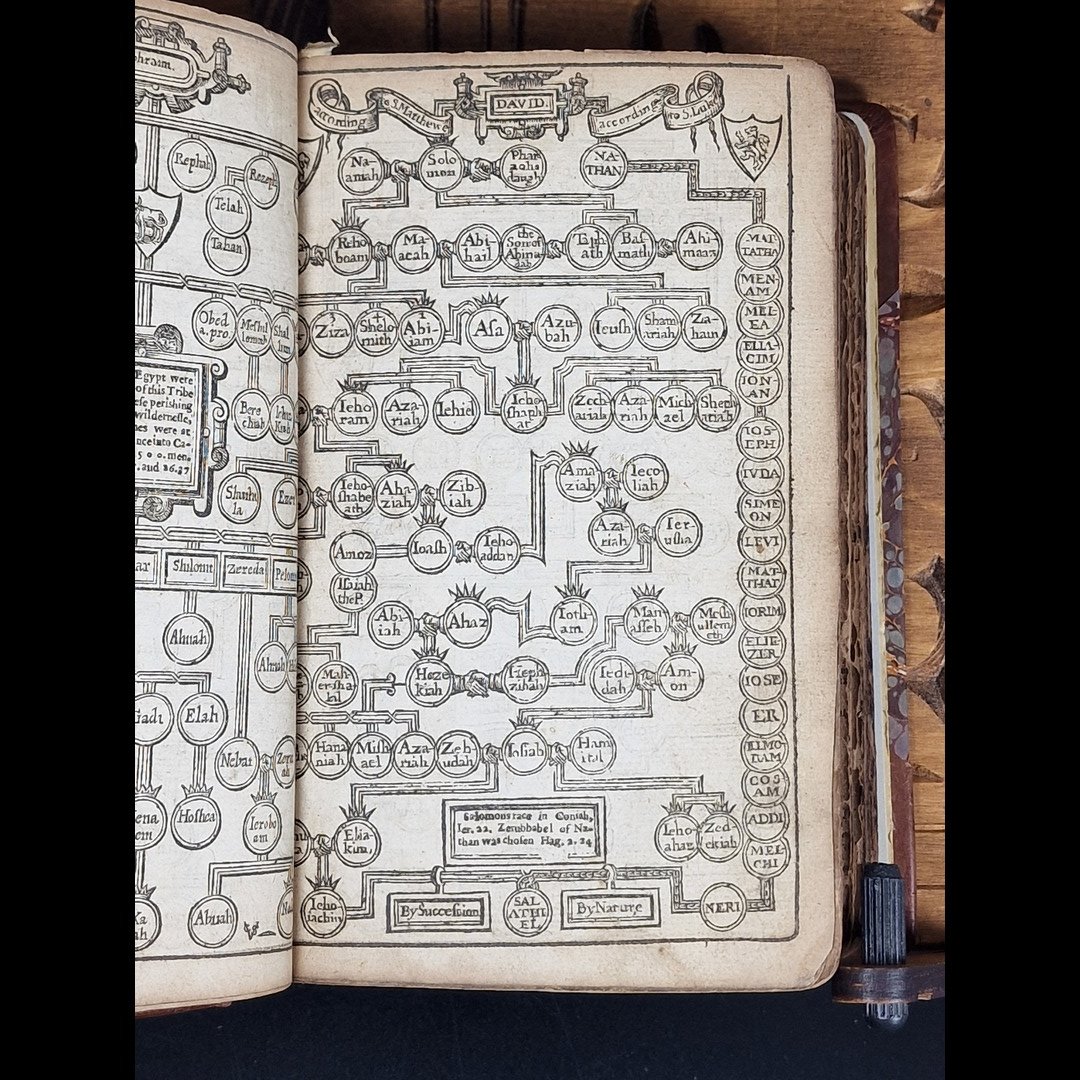 hraim.
Rephah
Rezeph
Telah
Tahan
Obed
a. pro.
Meshul
Shal
lum
Egypt were
of this Tribe
perishing
wildernesse,
es were at
nce into Ca-
500. men.
and 26.37
Bere
chiah
Shuthe
la
Ezer
ar
Shilonit
Zereda
Ahuah
Ahuah
Gadi
Elah
Nebat
Hoshea
Ierobo
am
Abuah
according
to S. Matthewe
DAVID.
according
to S. Luke
Na-
amah
Solo
mon
Phar
aohs
daugh
NA-
THAN
Reho
boam
Ma-
acah
Abi-
hail
the
Son of
Abina-
dab
Taph
ath
Bas
math
Ahi-
maaz
MAT
TATHA
MEN-
AM
MEL-
EA
ELIA-
CIM
ION-
AN
IOS-
EPH
IVDA
SIME
ON
LEVI
MAT-
THAT
IORIM
ELIE-
ZER
IOSE
ER
ELMO-
DAM
COS
AM
ADDI
MEL-
CHI
NERI
Ziza
Shelo
mith
Abi-
iam
Asa
Azu-
bah
Ieush
Sham
ariah
Za-
ham
Ieho
ram
Aza-
riah
Iehiel
Ieho
shaph
at
Zech
ariah
Aza-
riah
Mich
ael
Sheph
atiah
Ieho
shabe
ath
Aha-
ziah
Zib-
iah
Ama-
ziah
Ieco
liah
Amoz
Isaiah
the P.
Ioash
Ieho-
addan
Aza-
riah
Ier-
usha
Abi-
iah
Ahaz
Ioth-
am
Man-
asseh
Mesh
ullem
eth
Mah-
ersha
lal
Heze
kiah
Heph
zibah
Iedi-
dah
Am-
on
Hana
niah
Mish
ael
Aza-
riah
Zeb-
udah
Iosiah
Ham
ital
Elia-
kim,
Salomons race in Coniah,
Ier. 22, Zerubbabel of Na-
than was chosen Hag, 2. 24
Ieho-
ahaz
Zed-
ekiah
Ieho
iachin
By Succession
SAL
ATHI
EL
By Nature